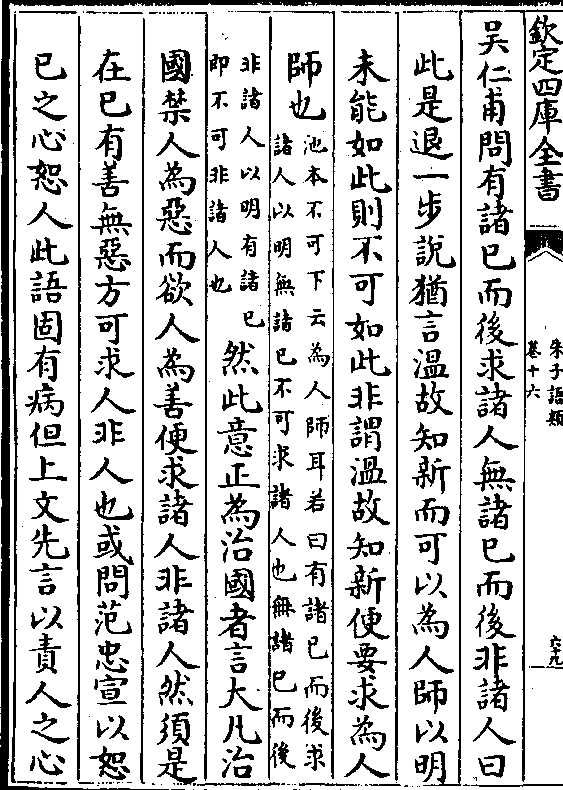 欽定四庫全書
朱子語類
卷十六
六十九
吳仁甫問有諸已而後求諸人無諸已而後非諸人曰
此是退一步說猶言溫故知新而可以為人師以明
未能如此則不可如此非謂溫故知新便要求為人
師也
池本不可下云為人師耳若曰有諸已而後求
諸人以明無諸已不可求諸人也無諸已而後
非諸人以明有諸已
即不可非諸人也
然此意正為治國者言大凡治
國禁人為惡而欲人為善便求諸人非諸人然須是
在已有善無惡方可求人非人也或問范忠宣以恕
已之心恕人此語固有病但上文先言以責人之心